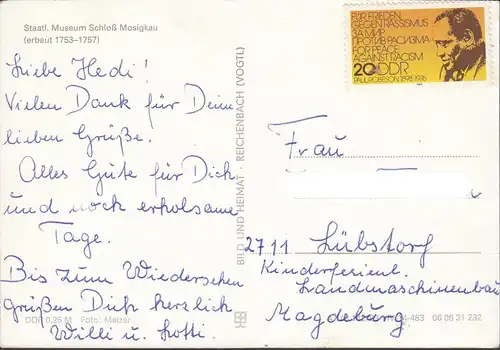 Staatl. Museum Schloß Mosigkau
(erbaut 1753–1757)
Liebe Hedi!
Vielen Dank für Deine
lieben Grüße.
Alles Gute für Dich
und noch erholsame
Tage.
Bis zum Wiedersehen
grüßen Dich herzlich
Willi u. Lotti.
DDR 0,25 M Foto: Melzer
BILD UND HEIMAT · REICHENBACH (VOGTL)
FÜR FRIEDEN
GEGEN RASSISMUS
ЗА МИР
ПРОТИВ РАСИЗМА
FOR PEACE
AGAINST RACISM
20 DDR
PAUL ROBESON 1898-1976
Frau
2711 Lübstorf
Kinderferienl.
Landmaschinenbau
Magdeburg
4-483 06 08 31 232